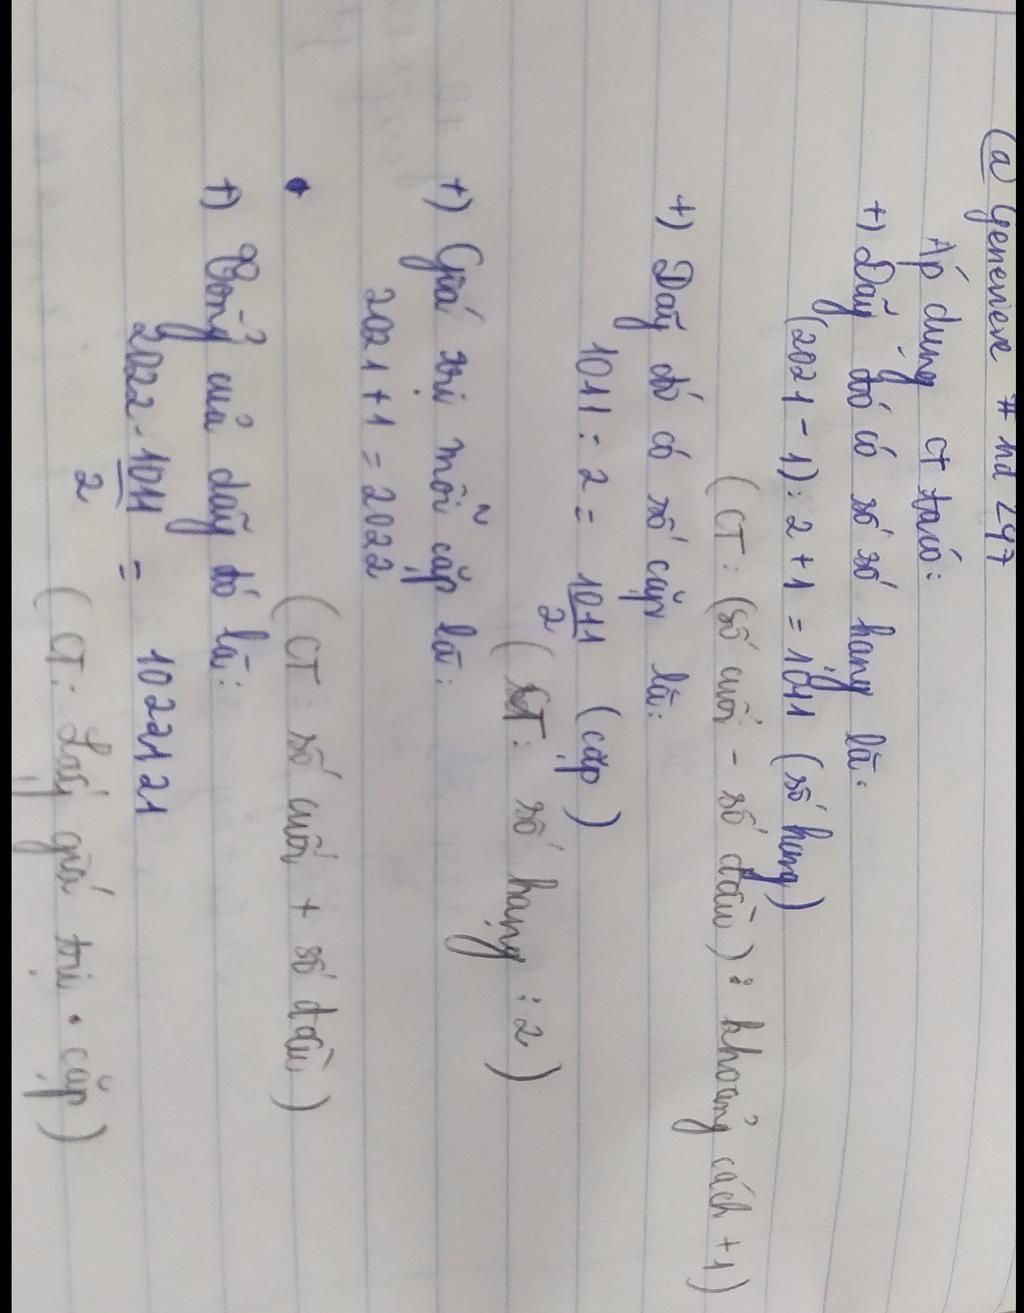 @ Genevieve # hd 247
Áp dụng CT ta có:
+) Dãy đó có số số hạng là:
(2021 - 1) : 2 + 1 = 1011 (số hạng)
(CT: (số cuối - số đầu) : khoảng cách + 1)
+) Dãy đó có số cặp là:
1011 : 2 = 1011/2 (cặp)
(CT: số hạng : 2)
+) Giá trị mỗi cặp là:
2021 + 1 = 2022
(CT: số cuối + số đầu)
+) Tổng của dãy đó là:
2022 . 1011/2 = 1022121
(CT: Lấy giá trị . cặp)